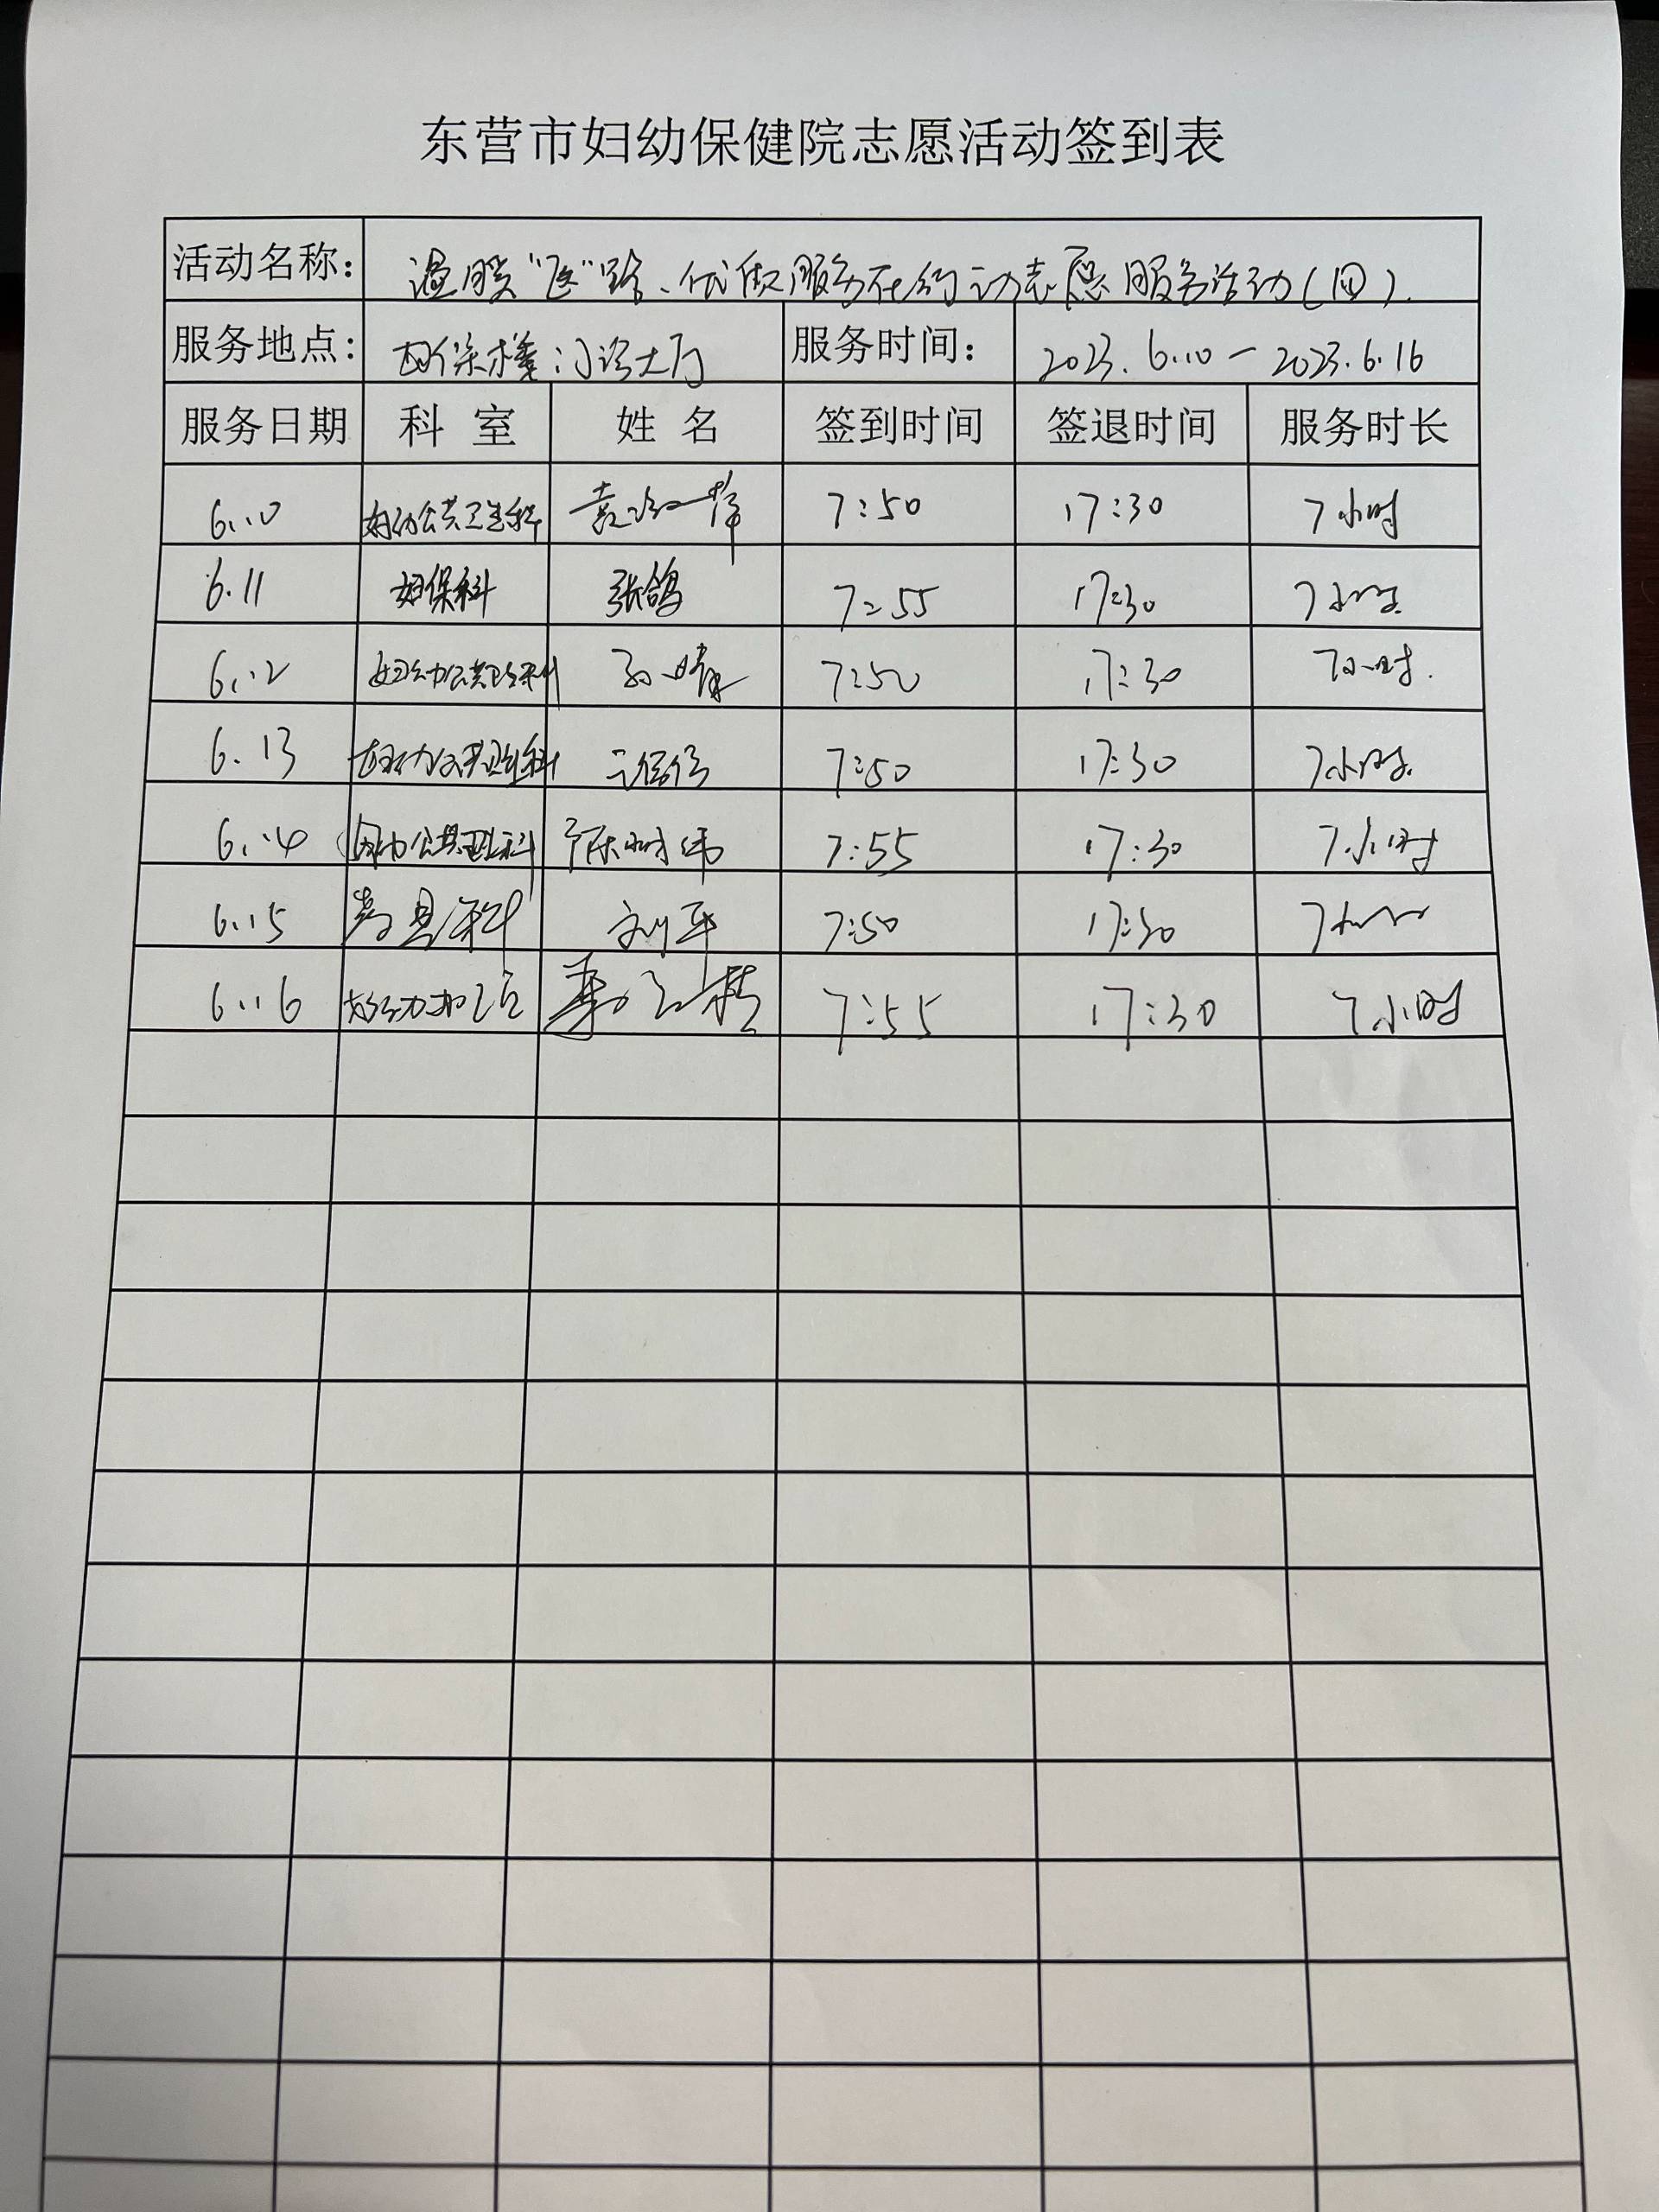 东营市妇幼保健院志愿活动签到表
活动名称: 温暖"医"路、优质服务在行动志愿服务活动(四).
服务地点: 妇保楼门诊大厅 服务时间: 2023.6.10-2023.6.16
服务日期 科室 姓名 签到时间 签退时间 服务时长
6.10 妇幼公共卫生科 7:50 17:30 7小时
6.11 妇保科 张鸽 7:55 17:30 7小时
6.12 妇幼公共卫生科 孙晴 7:50 17:30 7小时.
6.13 妇幼公共卫生科 7:50 17:30 7小时.
6.14 妇幼公共卫生科 7:55 17:30 7小时
6.15 科 7:50 17:30 7小时
6.16 7:55 17:30 7小时